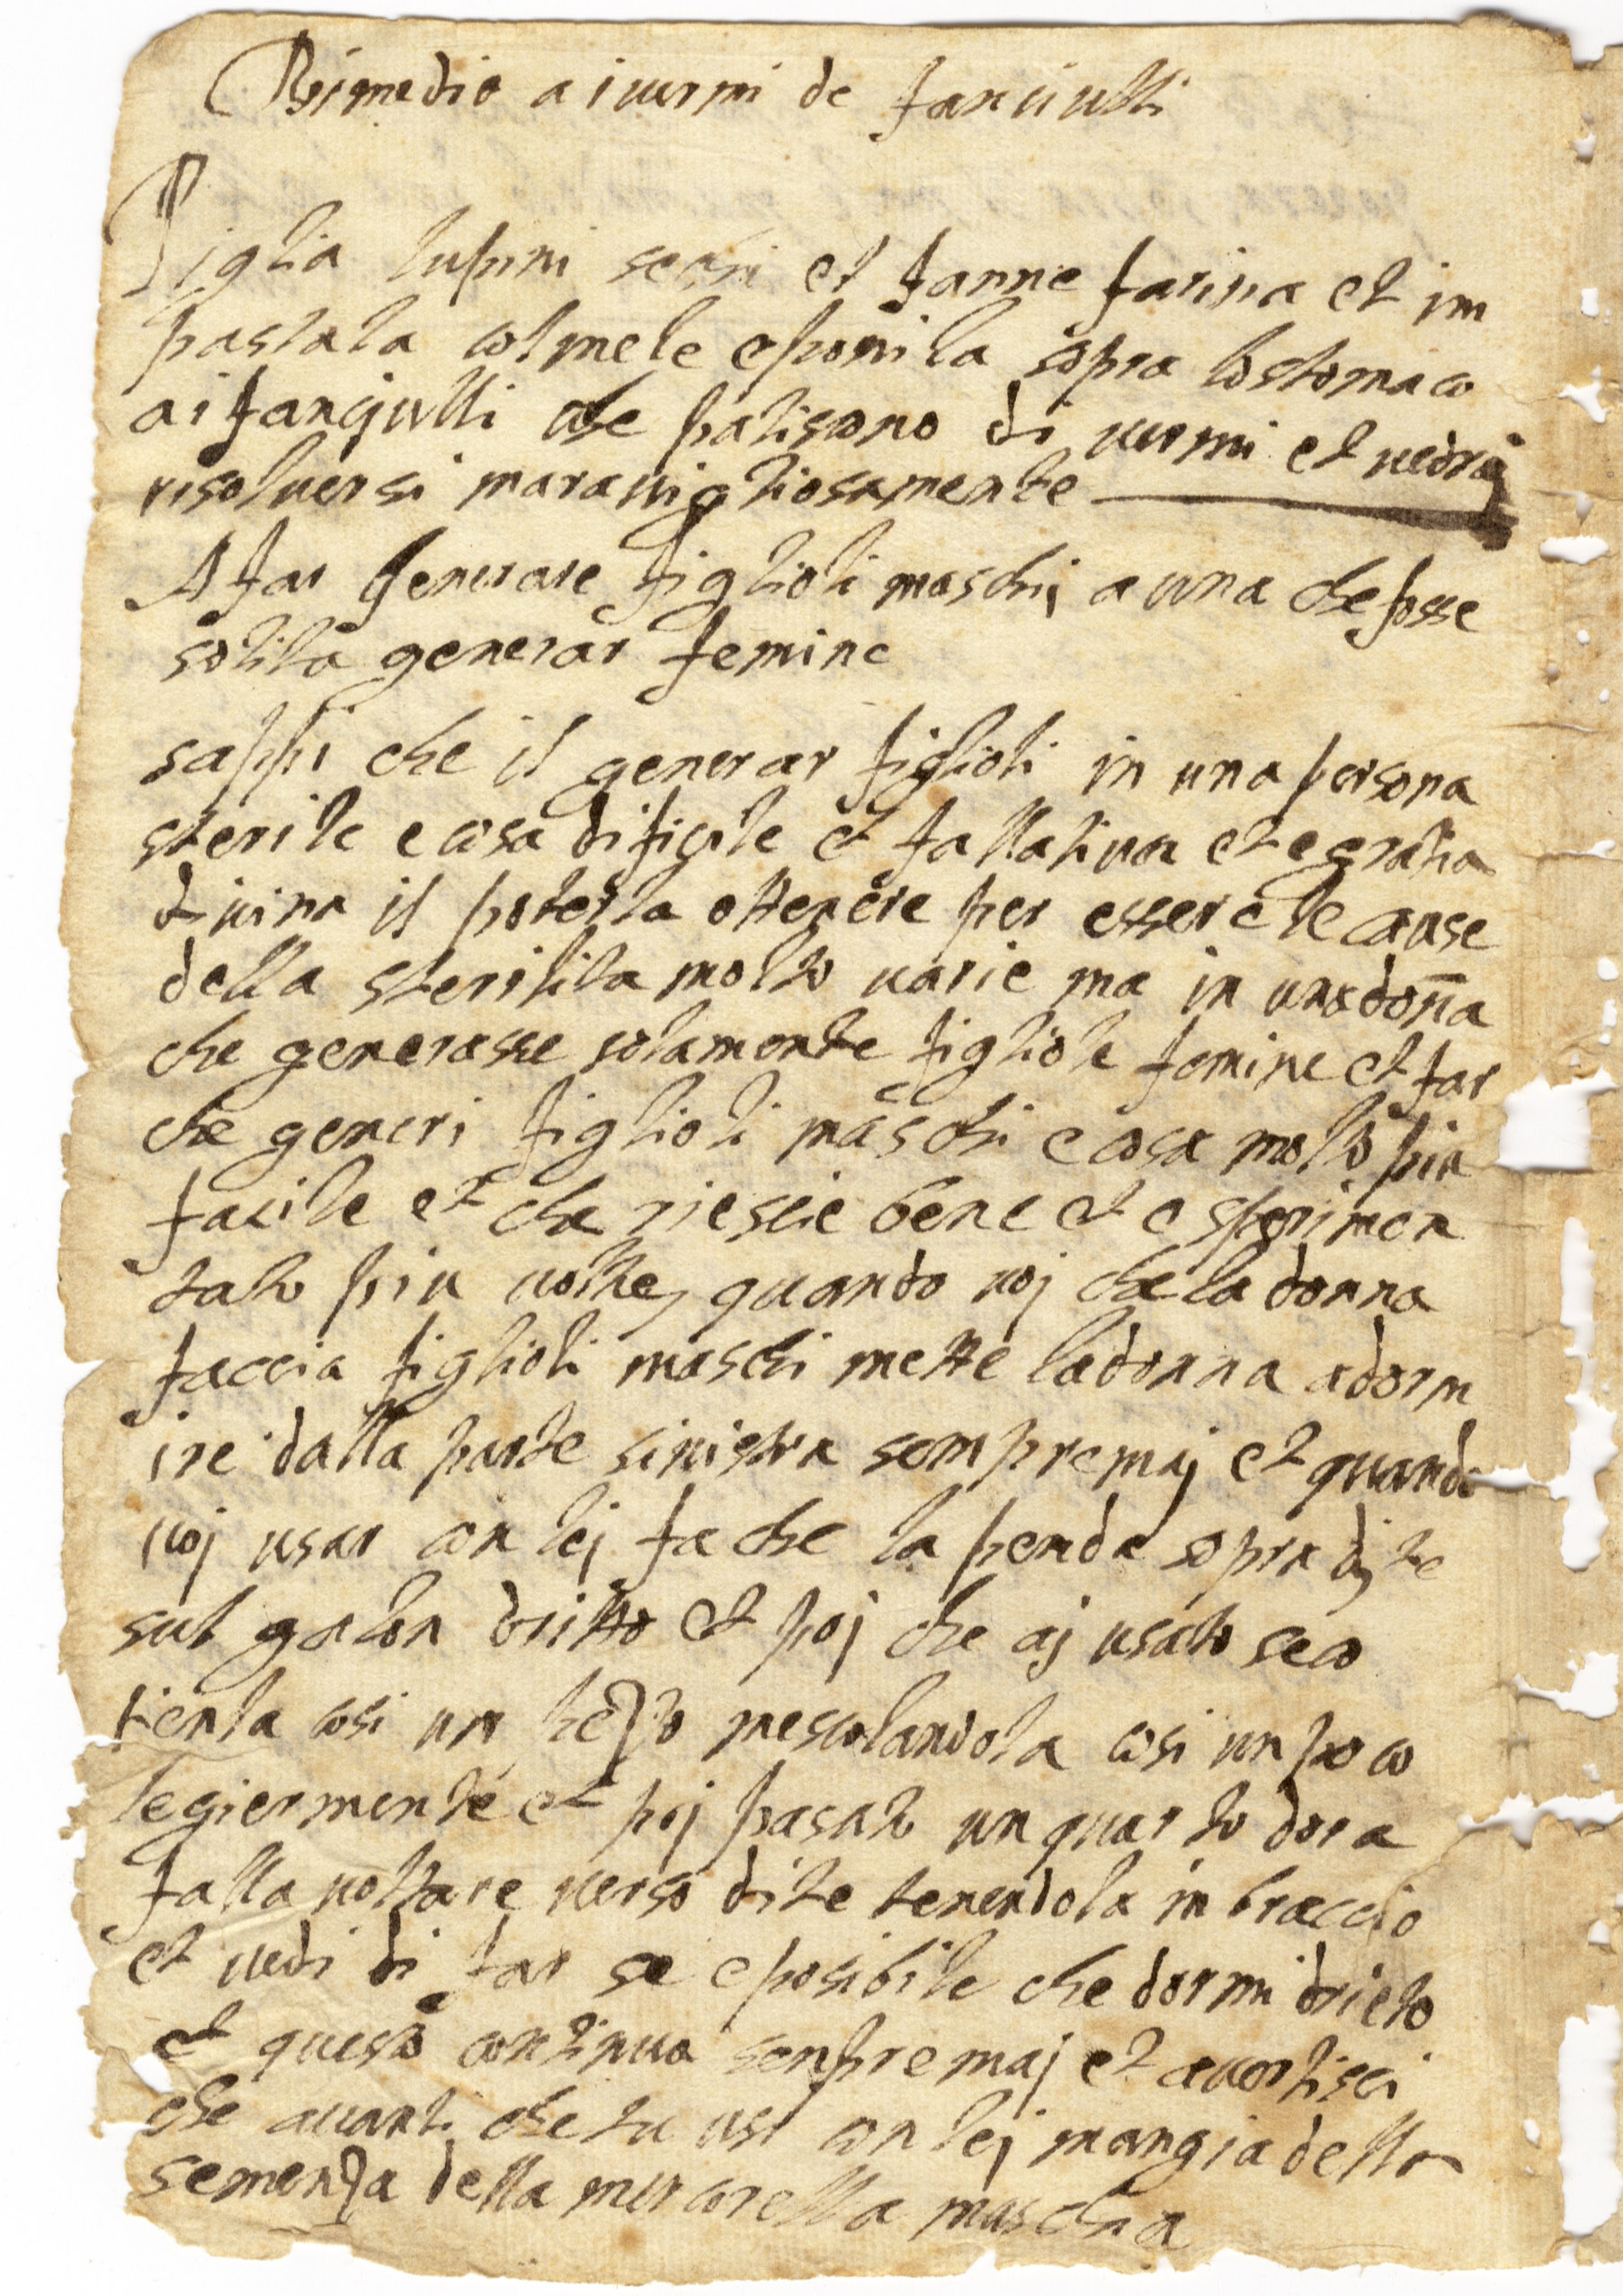 Rimedio a i uermi de fanciulli
Piglia lupini sechi et fanne farina et im
pastala col mele e ponila sopra lo stomaco
a i fangiulli che patiscono di uermi et uedrai
risoluersi marauigliosamente
A far generare figlioli maschi a una che fosse
solita generar femine
sappi che il generar figlioli in una persona
sterile e cosa dificile et fallatiua et e gratia
diuina il poterla ottenere per essere le cause
della sterilita molto uarie ma in una doña
che generasse solamente figliole femine et far
che generi figlioli maschi e cosa molto piu
facile et che riescie bene et e sperimen
tato piu uolte, quando uoj che la donna
faccia figlioli maschi mette la donna a dorm
ire dalla parte sinistra sempre maj et quando
uoj usar con lej fa che la penda sopra di te
sul galon dritto et poj che aj usato seco
tienla cosi un pezo mescolandola cosi un poco
legiermente et poj pasato un quarto dora
falla uoltare uerso di te tenendola in braccio
et uedi di far se e posibile che dormi drieto
et questo continua senpre maj et auertisci
che auanti che tu usi con lej mangia della
semenza della mercorella maschia